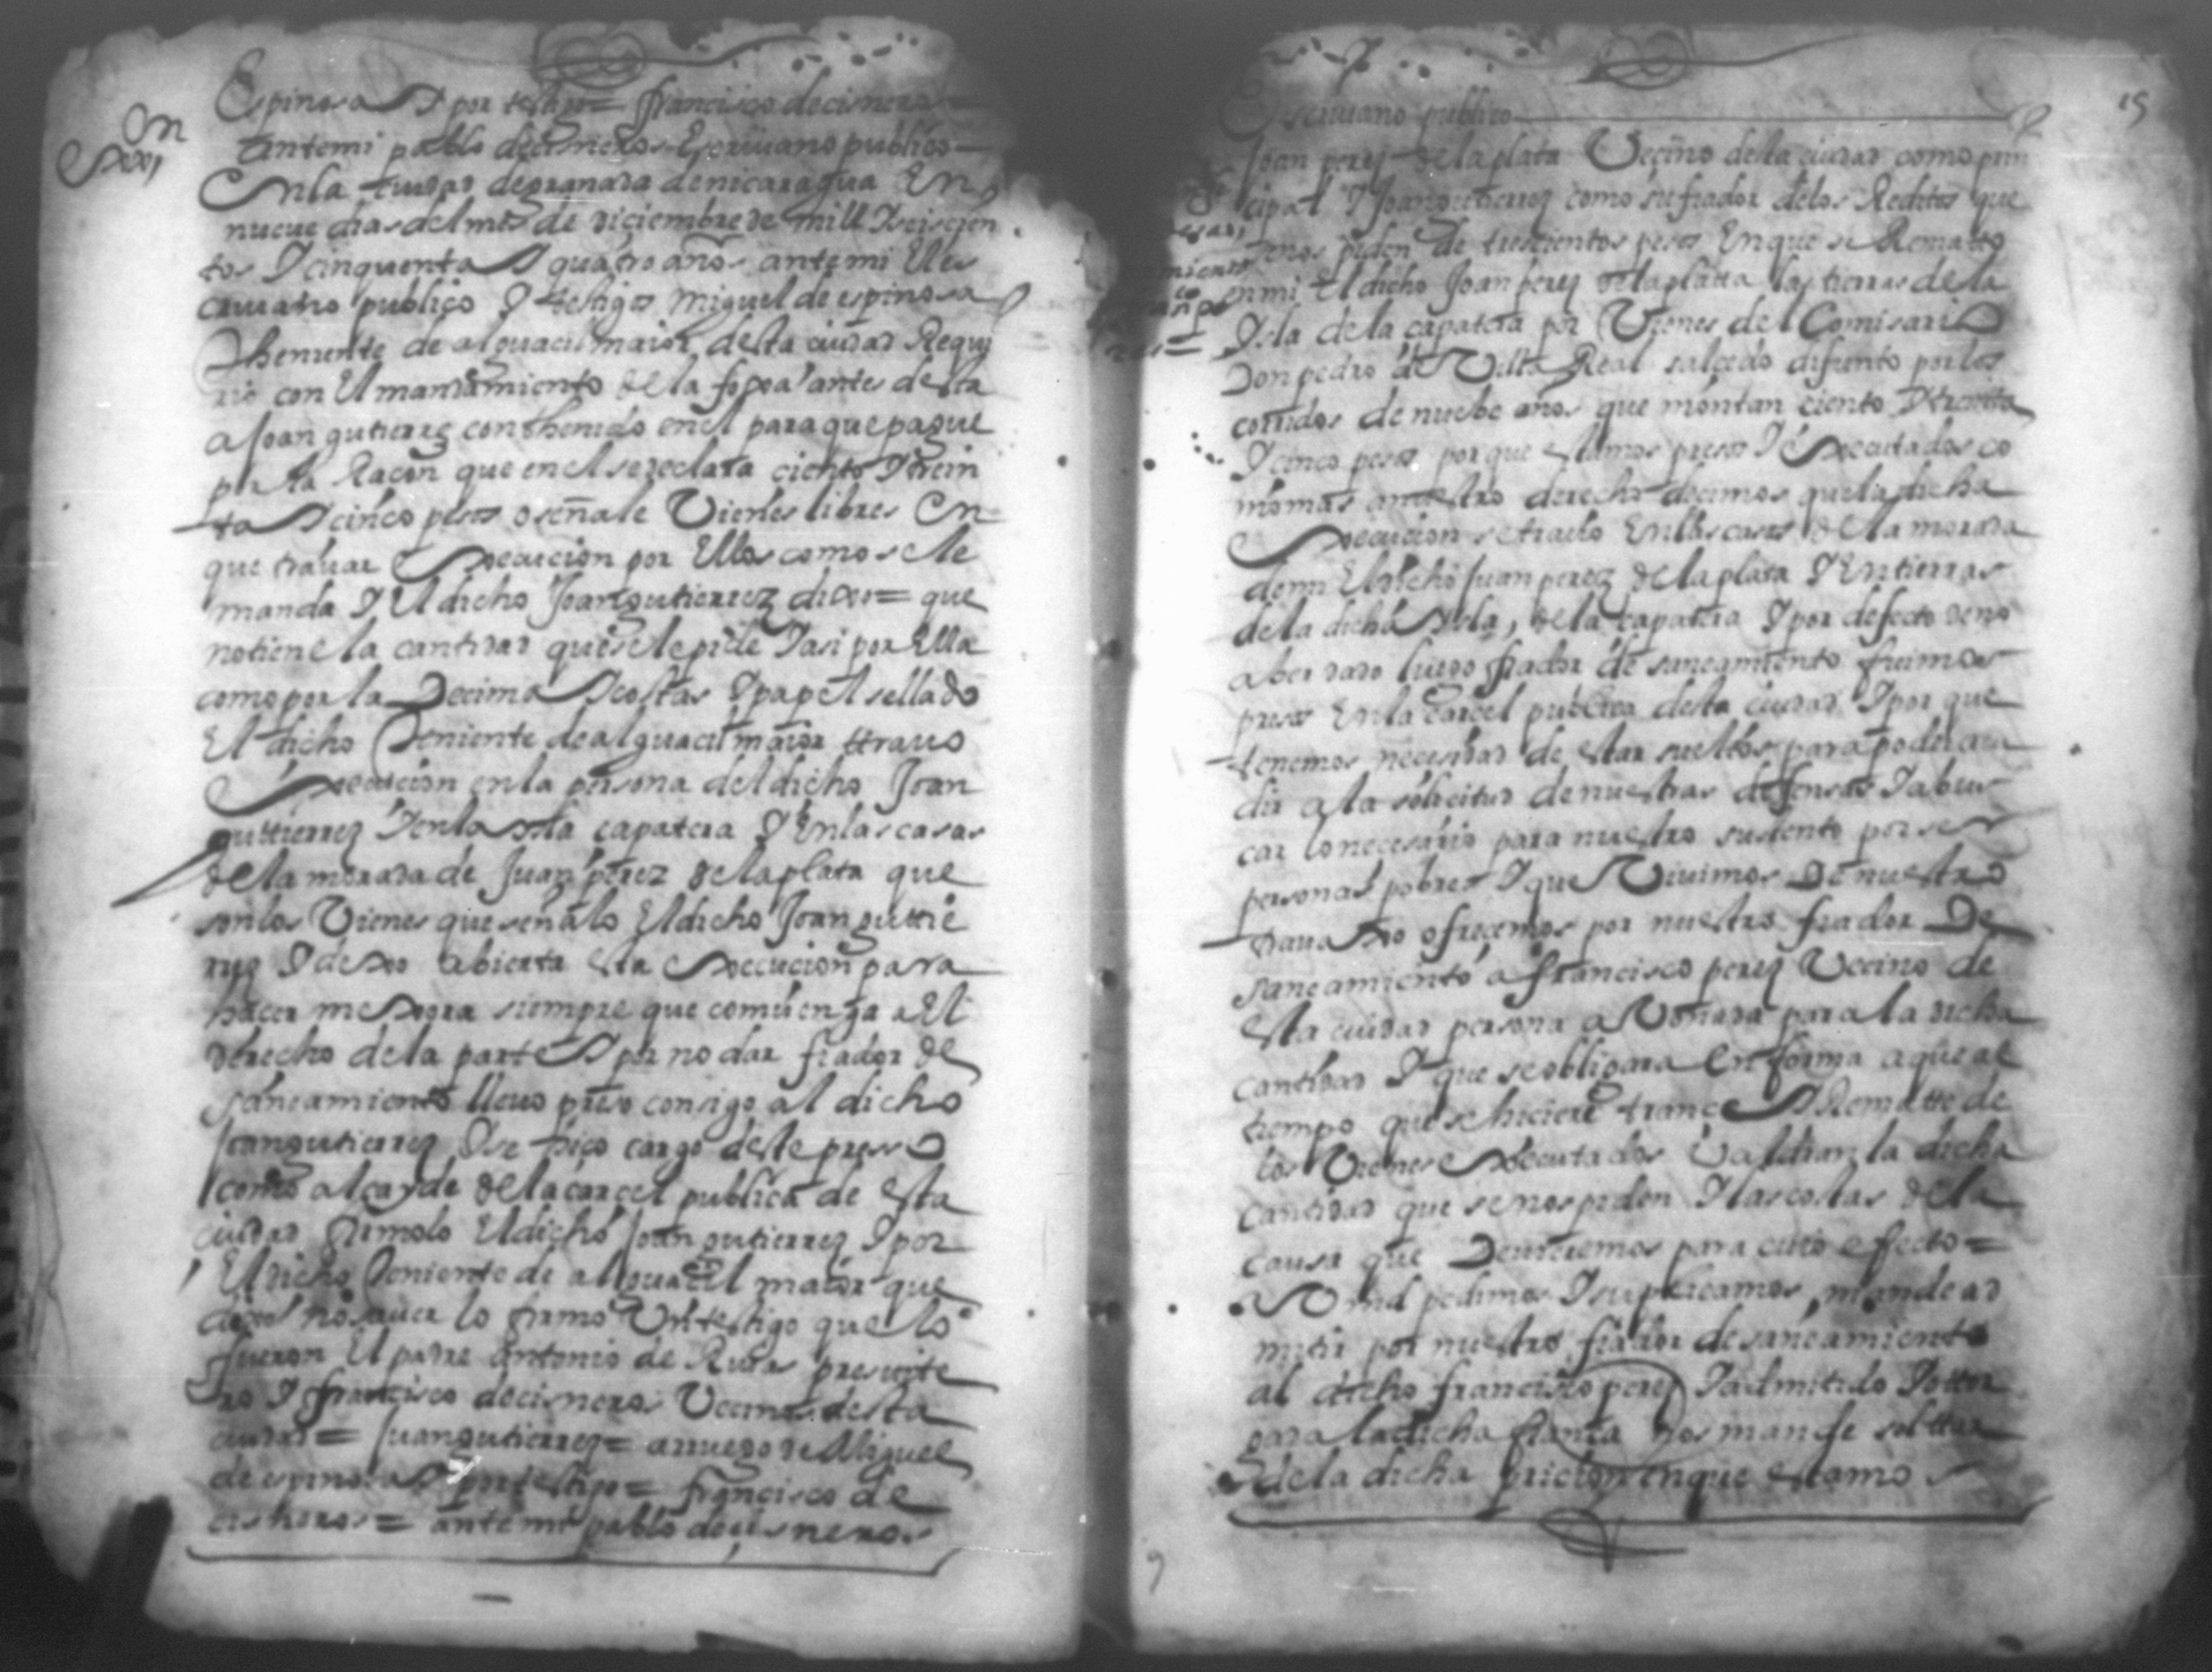 Espinosa I por testigo = francisco decisneros =
antemi pablo decisneros Escriuano publico
En la ciudad degranada denicaragua En
nueue dias delmes de diciembre de mill I seiscien
tos I cinquenta I quatro años antemi El es
criuano publico I testigos Miguel de espinosa
Theniente de alguacil maior desta ciudad Requi
rio con El mandamiento de la foxa antes desta
a Joan gutierrez conthenido en el para que pague
por la Raçon que en el se declara ciento I trein
ta I cinco pesos o señale Vienes libres En
que trauar Execucion por Ellos como se le
manda I El dicho Joan gutierrez dixo = que
no tiene la cantidad que se le pide I asi por Ella
como por la Decima I costas I papel sellado
El dicho Teniente de alguacil maior trauo
Execucion en la persona del dicho Joan
guttierrez I en la isla capatera I En las casas
de la morada de Juan perez de la plata que
son los Vienes que señalo El dicho Joan guttie
rrez I dexo abierta esta Execucion para
hacer mexora siempre que comuenga a El
derecho de la parte I por no dar fiador de
saneamiento lleuo preso consigo al dicho
Joan gutierrez I se hiço cargo deste preso
como alcayde de la carcel publica de esta
ciudad firmolo El dicho Joan gutierrez I por
El dicho Teniente de alguacil maior que
dixo no sauer lo firmo Un testigo que lo
fueron El padre antonio de Ruia presuite
ro I francisco decisneros Vecinos desta
ciudad = Juan gutierrez = a rruego de Miguel
de espinosa I por testigo = francisco de
cisneros = ante mi pablo decisneros
On
Sexxi
15
Escriuano publico
Joan perez de la plata Vecino desta ciudad como prin
cipal I Joan gutierrez como su fiador de los Reditos que
nos piden de trescientos pesos En que se Rematto
en mi El dicho Joan perez de la platta las tierras de la
Isla de la capatera por Vienes del Comisario
Don pedro de Villa Real salcedo difunto por los
corridos de nuebe años que montan ciento I treinta
I cinco pesos por que estamos presos I Executados co
mo mas a nuestro derecho decimos que la dicha
Execucion se trauo En las casas de la morada
de mi El dicho Juan perez de la plata I En tierras
de la dicha Isla, de la capatera I por defecto de no
aber dado luego fiador de saneamiento fuimos
presos En la carcel publica desta ciudad I por que
tenemos necesidad de estar sueltos para poder acu
dir a la solicitud de nuestras defensas I a bus
car lo necesario para nuestro sustento por ser
personas pobres I que Viuimos De nuestro
trauaxo ofrecemos por nuestro fiador De
saneamiento a francisco perez Vecino de
esta ciudad persona aVonada para la dicha
cantidad I que se obligara En forma a que al
tiempo que se hiciere trance I Rematte de
los Vienes Executados Valdran la dicha
cantidad que se nos piden I las costas de la
causa que Deuieremos para cuio efecto =
A Vmd pedimos I suplicamos, mande ad
mitir por nuestro fiador de saneamiento
al dicho francisco perez I admitido
para la dicha fiança nos mande soltar
de la dicha pricion en que estamos